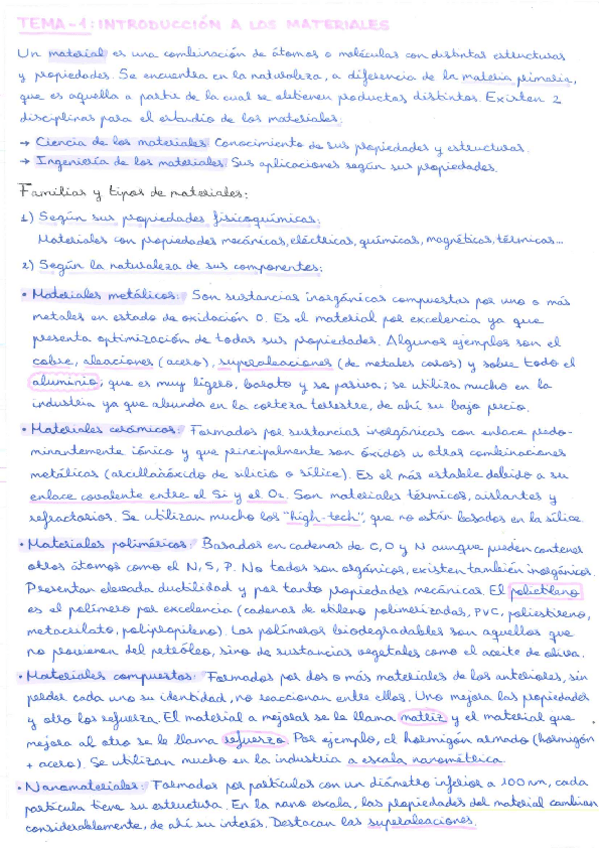 TEMA-1: INTRODUCCIÓN A LOS MATERIALES
Un material es una combinación de átomos o moléculas con distintas estructuras
y propiedades. Se encuentra en la naturaleza, a diferencia de la materia primaria,
que es aquella a partir de la cual se obtienen productos distintos. Existen 2
disciplinas para el estudio de los materiales:
→ Ciencia de los materiales Conocimiento de sus propiedades y estructuras.
→ Ingeniería de los materiales Sus aplicaciones según sus propiedades.
Familias y tipos de materiales:
1) Según sus propiedades fisicoquímicas:
Materiales con propiedades mecánicas, eléctricas, químicas, magnéticas, térmicas...
2) Según la naturaleza de sus componentes:
• Materiales metálicos: Son sustancias inorgánicas compuestas por uno o más
metales en estado de oxidación 0. Es el material por excelencia ya que
presenta optimización de todas sus propiedades. Algunos ejemplos son el
cobre, aleaciones (acero), superaleaciones (de metales caros) y sobre todo el
aluminio; que es muy ligero, barato y se pasiva; se utiliza mucho en la
industria ya que abunda en la corteza terrestre, de ahí su bajo precio.
• Materiales cerámicos: Formados por sustancias inorgánicas con enlace predo-
minantemente iónico y que principalmente son óxidos u otras combinaciones
metálicas (arcilla: óxido de silicio o sílice). Es el más estable debido a su
enlace covalente entre el Si y el O₂. Son materiales térmicos, aislantes y
refractarios. Se utilizan mucho los "high-tech", que no están basados en la sílice.
• Materiales poliméricos: Basados en cadenas de C, O y N aunque pueden contener
otros átomos como el N, S, P. No todos son orgánicos, existen también inorgánicos.
Presentan elevada ductilidad y por tanto propiedades mecánicas. El polietileno
es el polímero por excelencia (cadenas de etileno polimerizadas, PVC, poliestireno,
metacrilato, polipropileno). Los polímeros biodegradables son aquellos que
no provienen del petróleo, sino de sustancias vegetales como el aceite de oliva.
• Materiales compuestos: Formados por dos o más materiales de los anteriores, sin
perder cada uno su identidad, no reaccionan entre ellos. Uno mejora las propiedades
y otro los refuerza. El material a mejorar se le llama matriz y el material que
mejora al otro se le llama refuerzo. Por ejemplo, el hormigón armado (hormigón
+ acero). Se utilizan mucho en la industria a escala nanométrica.
• Nanomateriales: Formados por partículas con un diámetro inferior a 100 nm, cada
partícula tiene su estructura. En la nano escala, las propiedades del material cambian
considerablemente, de ahí su interés. Destacan las superaleaciones.